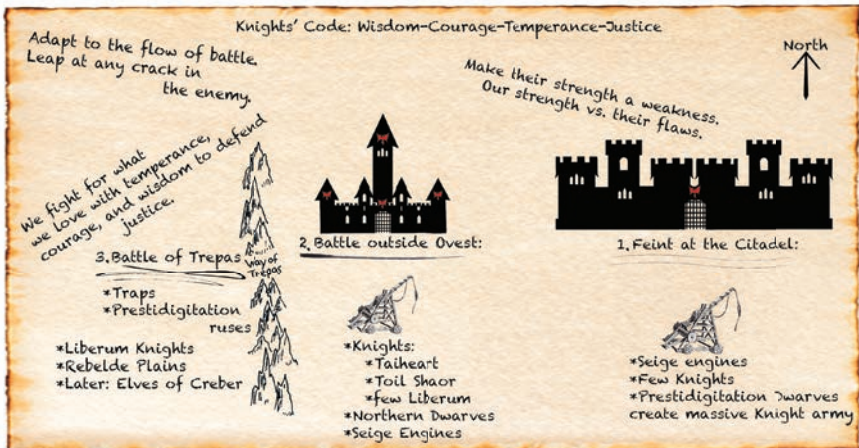 Knights' Code: Wisdom-Courage-Temperance-Justice
Adapt to the flow of battle.
Leap at any crack in
the enemy.
North
Make their strength a weakness.
Our strength vs. their flaws.
We fight for what
we love with temperance,
courage, and wisdom to defend
justice.
3. Battle of Trepas
Way of
Trepas
*Traps
*Prestidigitation
ruses
*Liberum Knights
*Rebelde Plains
*Later: Elves of Creber
2. Battle outside Ovest:
*Knights:
*Taiheart
*Toil Shaor
*few Liberum
*Northern Dwarves
*Seige Engines
1. Feint at the Citadel:
*Seige engines
*Few Knights
*Prestidigitation Dwarves
create massive Knight army